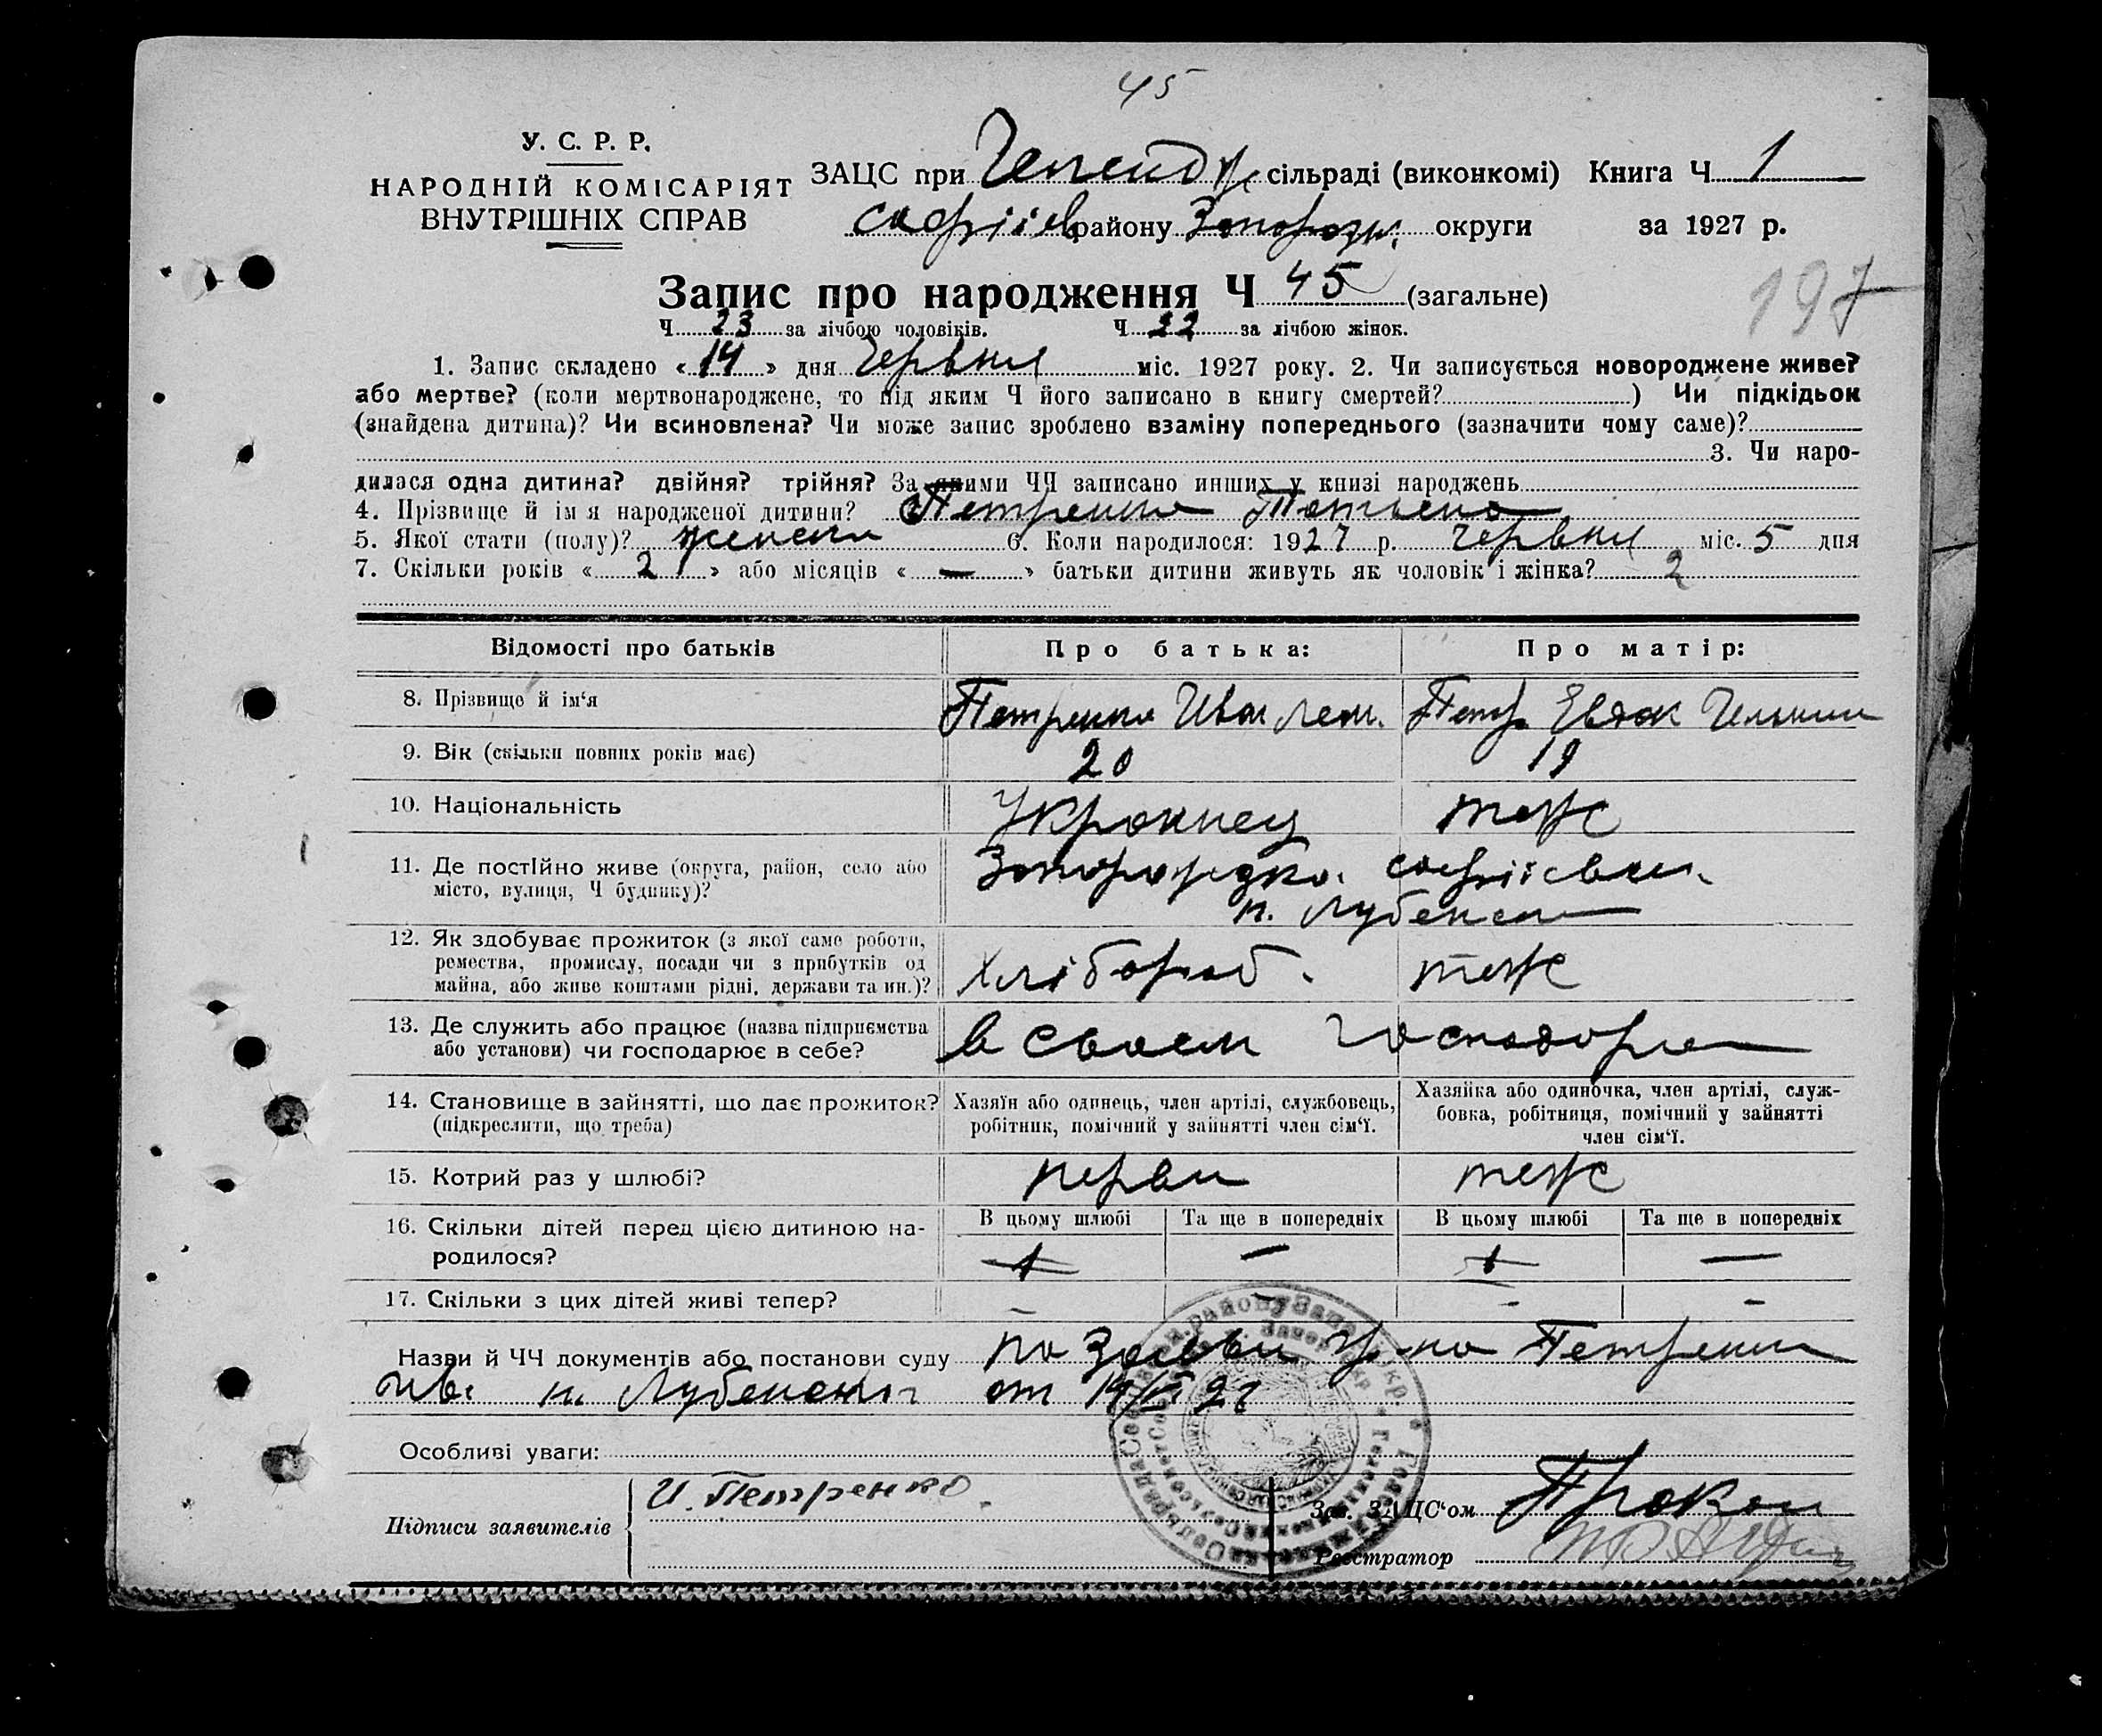 45
У. С. Р. Р.
НАРОДНІЙ КОМІСАРІЯТ
ВНУТРІШНІХ СПРАВ
ЗАЦС при сільраді (виконкомі) Книга Ч 1
софіїв району Запорозьк. округи за 1927 р.
Запис про народження Ч 45 (загальне)
197
Ч 23 за лічбою чоловіків. Ч 22 за лічбою жінок.
1. Запис складено « 14 » дня Червня міс. 1927 року. 2. Чи записується новороджене живе?
або мертве? (коли мертвонароджене, то під яким Ч його записано в книгу смертей? ) Чи підкідьок
(знайдена дитина)? Чи всиновлена? Чи може запис зроблено взаміну попереднього (зазначити чому саме)?
3. Чи наро-
дилася одна дитина? двійня? трійня? За якими ЧЧ записано инших у книзі народжень
4. Прізвище й ім я народженої дитини? Петренко Татьяна
5. Якої стати (полу)? женски 6. Коли народилося: 1927 р. Червня міс. 5 дня
7. Скільки років « 2 » або місяців « — » батьки дитини живуть як чоловік і жінка? 2
Відомості про батьків Про батька: Про матір:
8. Прізвище й ім‘я Петренко Иван Петр
9. Вік (скільки повних років має) 20 19
10. Національність Украинец теж
11. Де постійно живе (округа, район, село або Запорожзка. софіївск.
місто, вулиця, Ч будинку)? п. Лубенск
12. Як здобуває прожиток (з якої саме роботи,
ремества, промислу, посади чи з прибутків од Хлібороб. теж
майна, або живе коштами рідні, держави та ин.)?
13. Де служить або працює (назва підприємства в своем господарс
або установи) чи господарює в себе?
14. Становище в зайнятті, що дає прожиток? (підкреслити, що треба)
Хазяїн або одинець, член артілі, службовець,
робітник, помічний у зайнятті член сім‘ї.
Хазяйка або одиночка, член артілі, служ-
бовка, робітниця, помічний у зайнятті
член сім‘ї.
15. Котрий раз у шлюбі? перви теж
16. Скільки дітей перед цією дитиною на-
родилося?
В цьому шлюбі Та ще в попередніх В цьому шлюбі Та ще в попередніх
1 — 1 —
17. Скільки з цих дітей живі тепер? - - - -
Назви й ЧЧ документів або постанови суду по Заяви гр-на Петренко
Ив. п. Лубенског от 14/VI 27
Особливі уваги:
Підписи заявителів И. Петренко.
Зав. ЗАЦС‘ом
Реєстратор